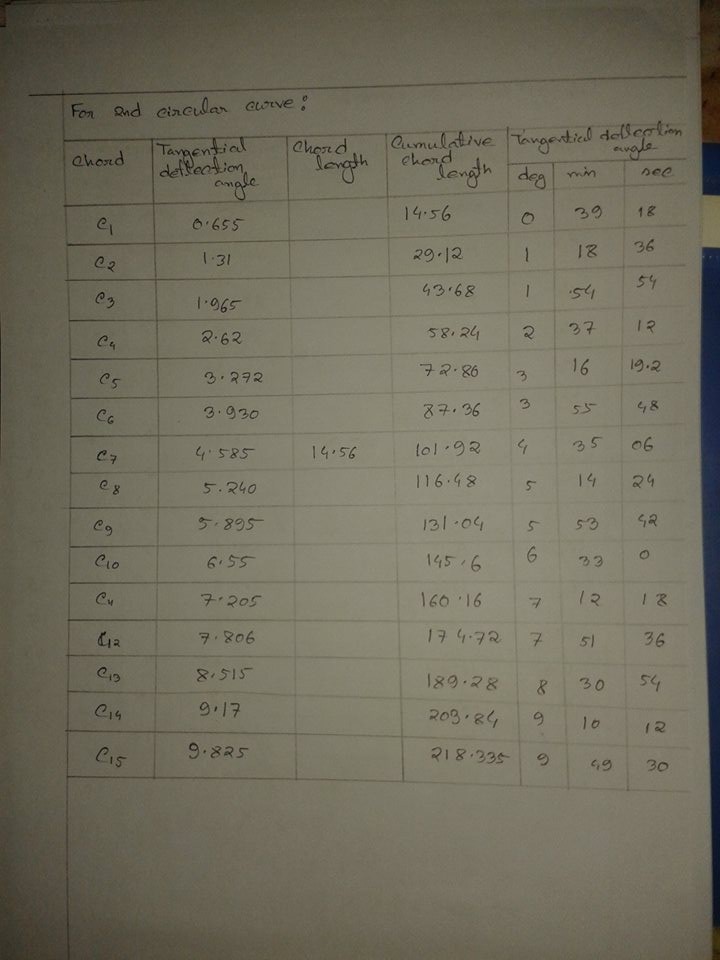 For 2nd circular curve:
Chord Tangential deflection angle Chord length Cumulative chord length Tangential deflection angle
deg min sec
C1 0.655 14.56 0 39 18
C2 1.31 29.12 1 18 36
C3 1.965 43.68 1 54 54
C4 2.62 58.24 2 37 12
C5 3.272 72.80 3 16 19.2
C6 3.930 87.36 3 55 48
C7 4.585 14.56 101.92 4 35 06
C8 5.240 116.48 5 14 24
C9 5.895 131.04 5 53 42
C10 6.55 145.6 6 33 0
C11 7.205 160.16 7 12 18
C12 7.806 174.72 7 51 36
C13 8.515 189.28 8 30 54
C14 9.17 203.84 9 10 12
C15 9.825 218.335 9 49 30